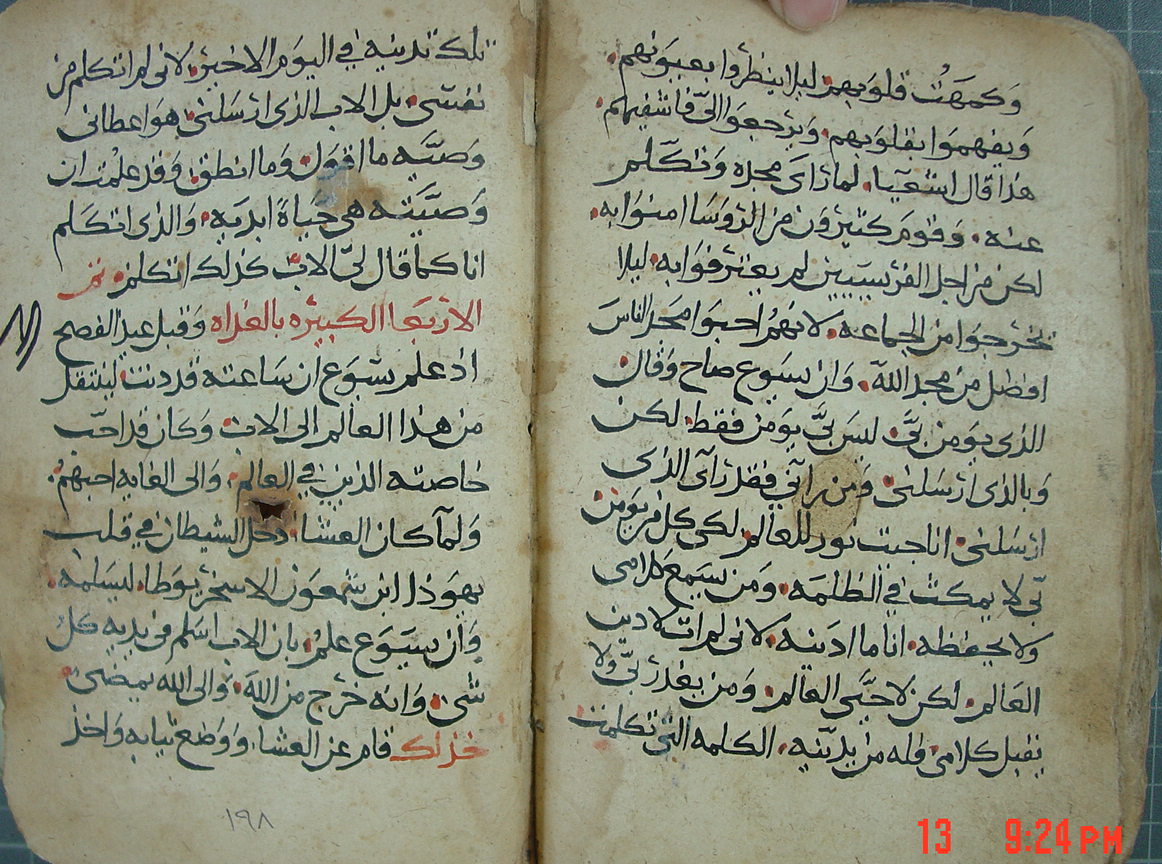 وكمهت قلوبهم ليلا ينظروا بعيونهم
ويفهموا بقلوبهم ويرجعوا اليّ فاشفيهم
هذا قال اشعيا لما راى مجده وتكلم
عنه وقوم كثيرون من الروسا امنوا به
لكن من اجل الفريسيين لم يعترفوا به ليلا
يخرجوا من الجماعه لانهم احبوا مجد الناس
افضل من مجد الله وان يسوع صاح وقال
الذى يومن بيّ ليس بيّ يومن فقط لكن
وبالذى ارسلنى ومن راني فقد راى الذى
ارسلنى انا جيت نور للعالم لكى كل من يومن
بي لا يمكث في الظلمه ومن يسمع كلامى
ولا يحفظه انا ما ادينه لانى لم ات لادين
العالم لكن لاحيى العالم ومن يغدر بى ولا
يقبل كلامى فله من يدينه الكلمه التى تكلمت
تلك تدينه في اليوم الاخير لانى لم اتكلم من
نفسى بل الاب الذى ارسلنى هو اعطانى
وصيه ما اقول وما انطق وقد علمت ان
وصيته هى حياة ابديه والذى اتكلم
انا كما قال لى الاب كذلك اتكلم
الاربعا الكبيره بالغداه وقبل عيد الفصح
اذ علم يسوع ان ساعته قد دنت لينتقل
من هذا العالم الى الاب وكان قد احب
خاصته الذين في العالم والى الغايه احبهم
ولما كان العشا دخل الشيطان في قلب
يهوذا ابن شمعون الاسخريوطا ليسلمه
وان يسوع علم بان الاب اسلم في يديه كل
شى وانه خرج من الله والى الله يمضى
قام عن العشا ووضع ثيابه واخذ
١٩٨
13 9:24 PM